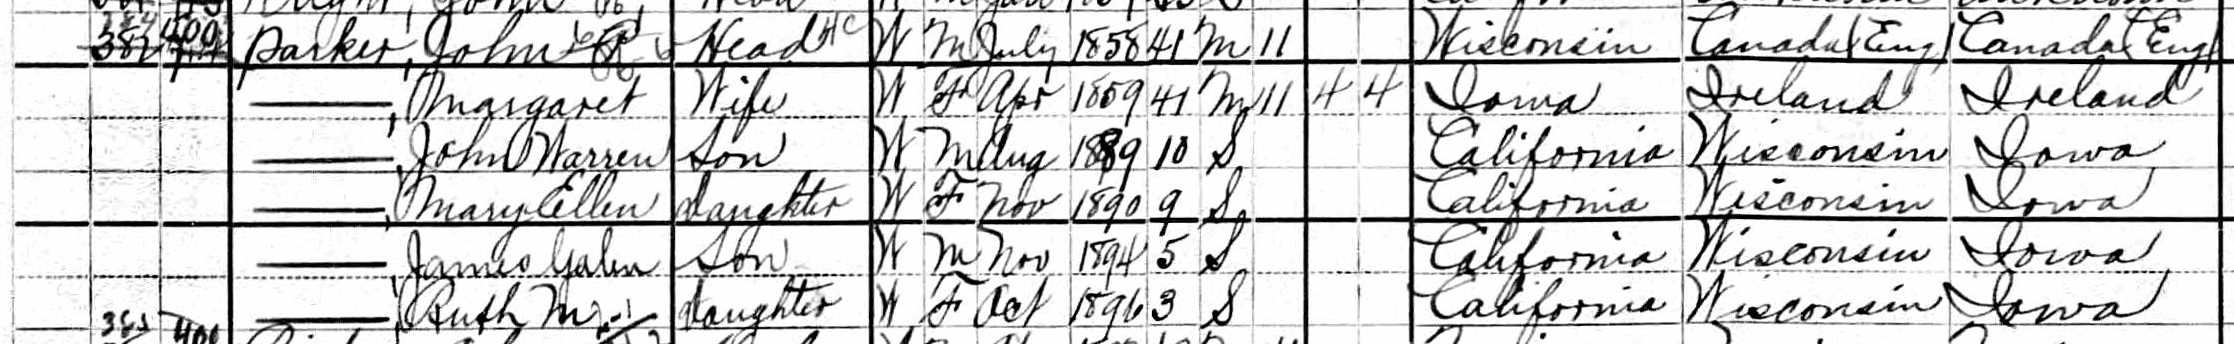 Parker, John R Head W M July 1858 41 M 11 Wisconsin Canada (Eng) Canada (Eng)
—, Margaret Wife W F Apr 1859 41 M 11 4 4 Iowa Ireland Ireland
—, John Warren Son W M Aug 1889 10 S California Wisconsin Iowa
—, Mary Ellen daughter W F Nov 1890 9 S California Wisconsin Iowa
—, James Galen Son W M Nov 1894 5 S California Wisconsin Iowa
—, Ruth M daughter W F Oct 1896 3 S California Wisconsin Iowa